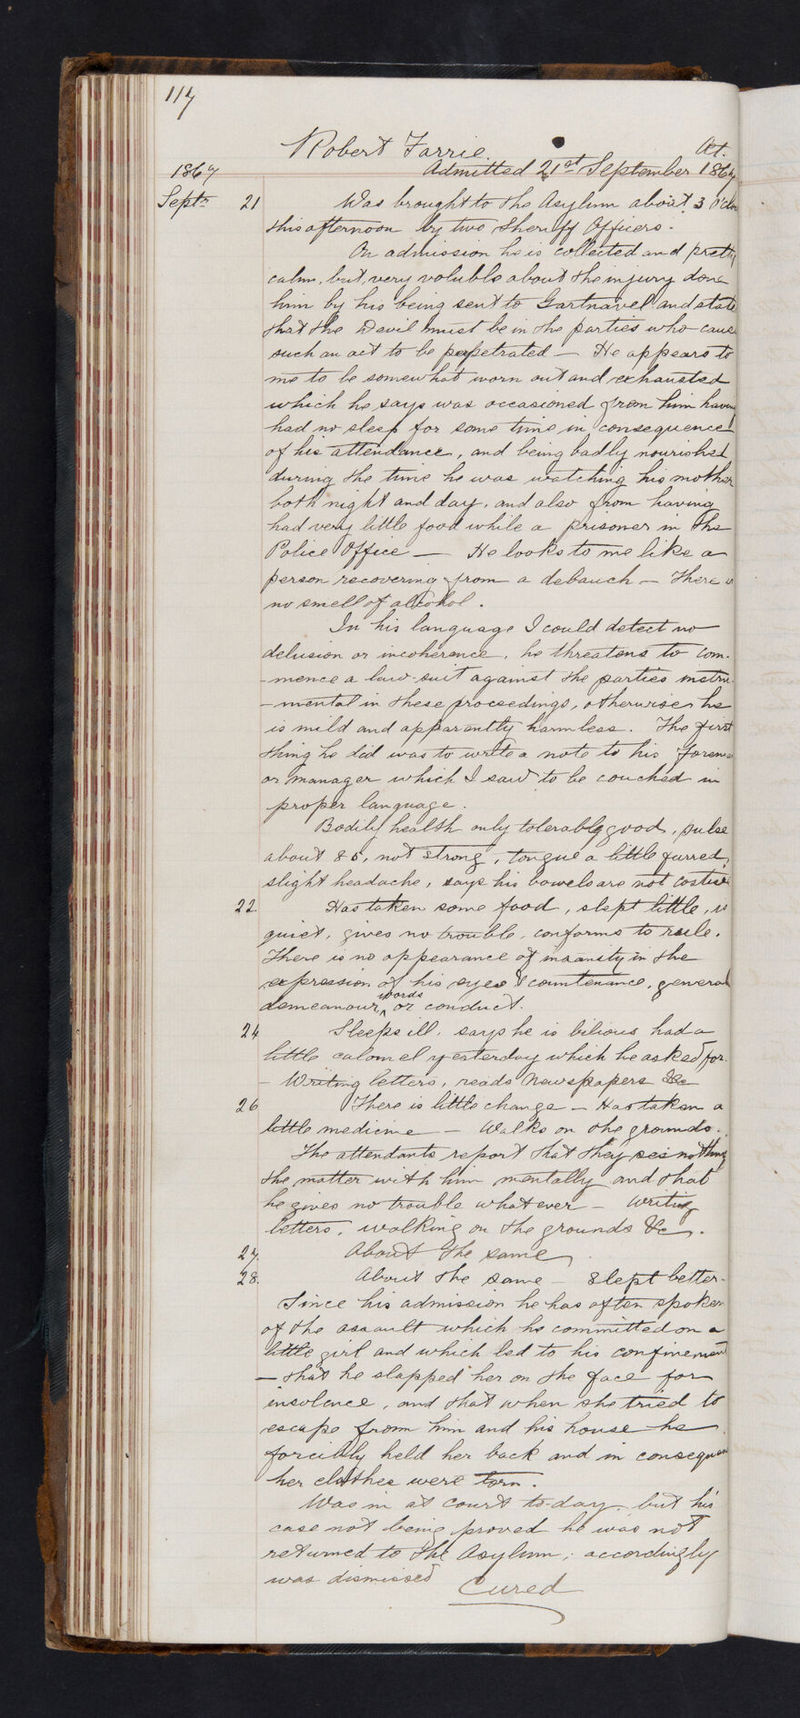 117
Robert Farrie. Æt.
1867 Admitted 21st September 1867
Septr 21 Was brought to the Asylum about 3 O'Clo
this afternoon by two Sheriff Officers.
On admission he is collected and pretty
calm, but, very voluble about the injury done
him by his being sent to Gartnavel and state
that the Devil must be in the parties who cause
such an act to be perpetrated — He appears to
me to be somewhat worn out and exhausted
which he says was occasioned from him having
had no sleep for some time in consequence
of his attendance, and being badly nourished
during the time he was watching his mother
both night and day, and also from having
had very little food while a prisoner in the
Police Office — He looks to me like a
person recovering from a debauch — There is
no smell of alcohol.
In his language I could detect no
delusion or incoherence, he threatens to com-
-mence a law-suit against the parties instru-
-mental in these proceedings, otherwise he
is mild and apparantly harmless. The first
thing he did was to write a note to his forem
or manager which I saw to be couched in
proper language.
Bodily health only tolerably good, pulse
about 85, not strong, tongue a little furred,
slight headache, says his bowels are not costive
22 Has taken some food, slept little, is
quiet, gives no trouble, conforms to rule.
There is no appearance of insanity in the
expression of his eyes & countenance, general
demeanour, words or conduct.
24 Sleeps ill, says he is bilious had a
little calomel yesterday which he asked for.
— Writing letters, reads Newspapers &c
26 There is little change — Has taken a
little medicine — Walks on the grounds.
The attendants report that they see nothing
the matter with him mentally and that
he gives no trouble whatever — writing
letters, walking on the grounds &c.
27. About the same.
28. About the same — Slept better.
Since his admission he has often spoken
of the assault which he committed on a
little girl and which led to his confinement
— that he slapped her on the face for
insolence, and that when she tried to
escape from him and his house he
forcibly held her back and in consequen
her clothes were torn.
Was in at court to-day, but his
case not being proved he was not
returned to the Asylum; accordingly
was dismissed Cured